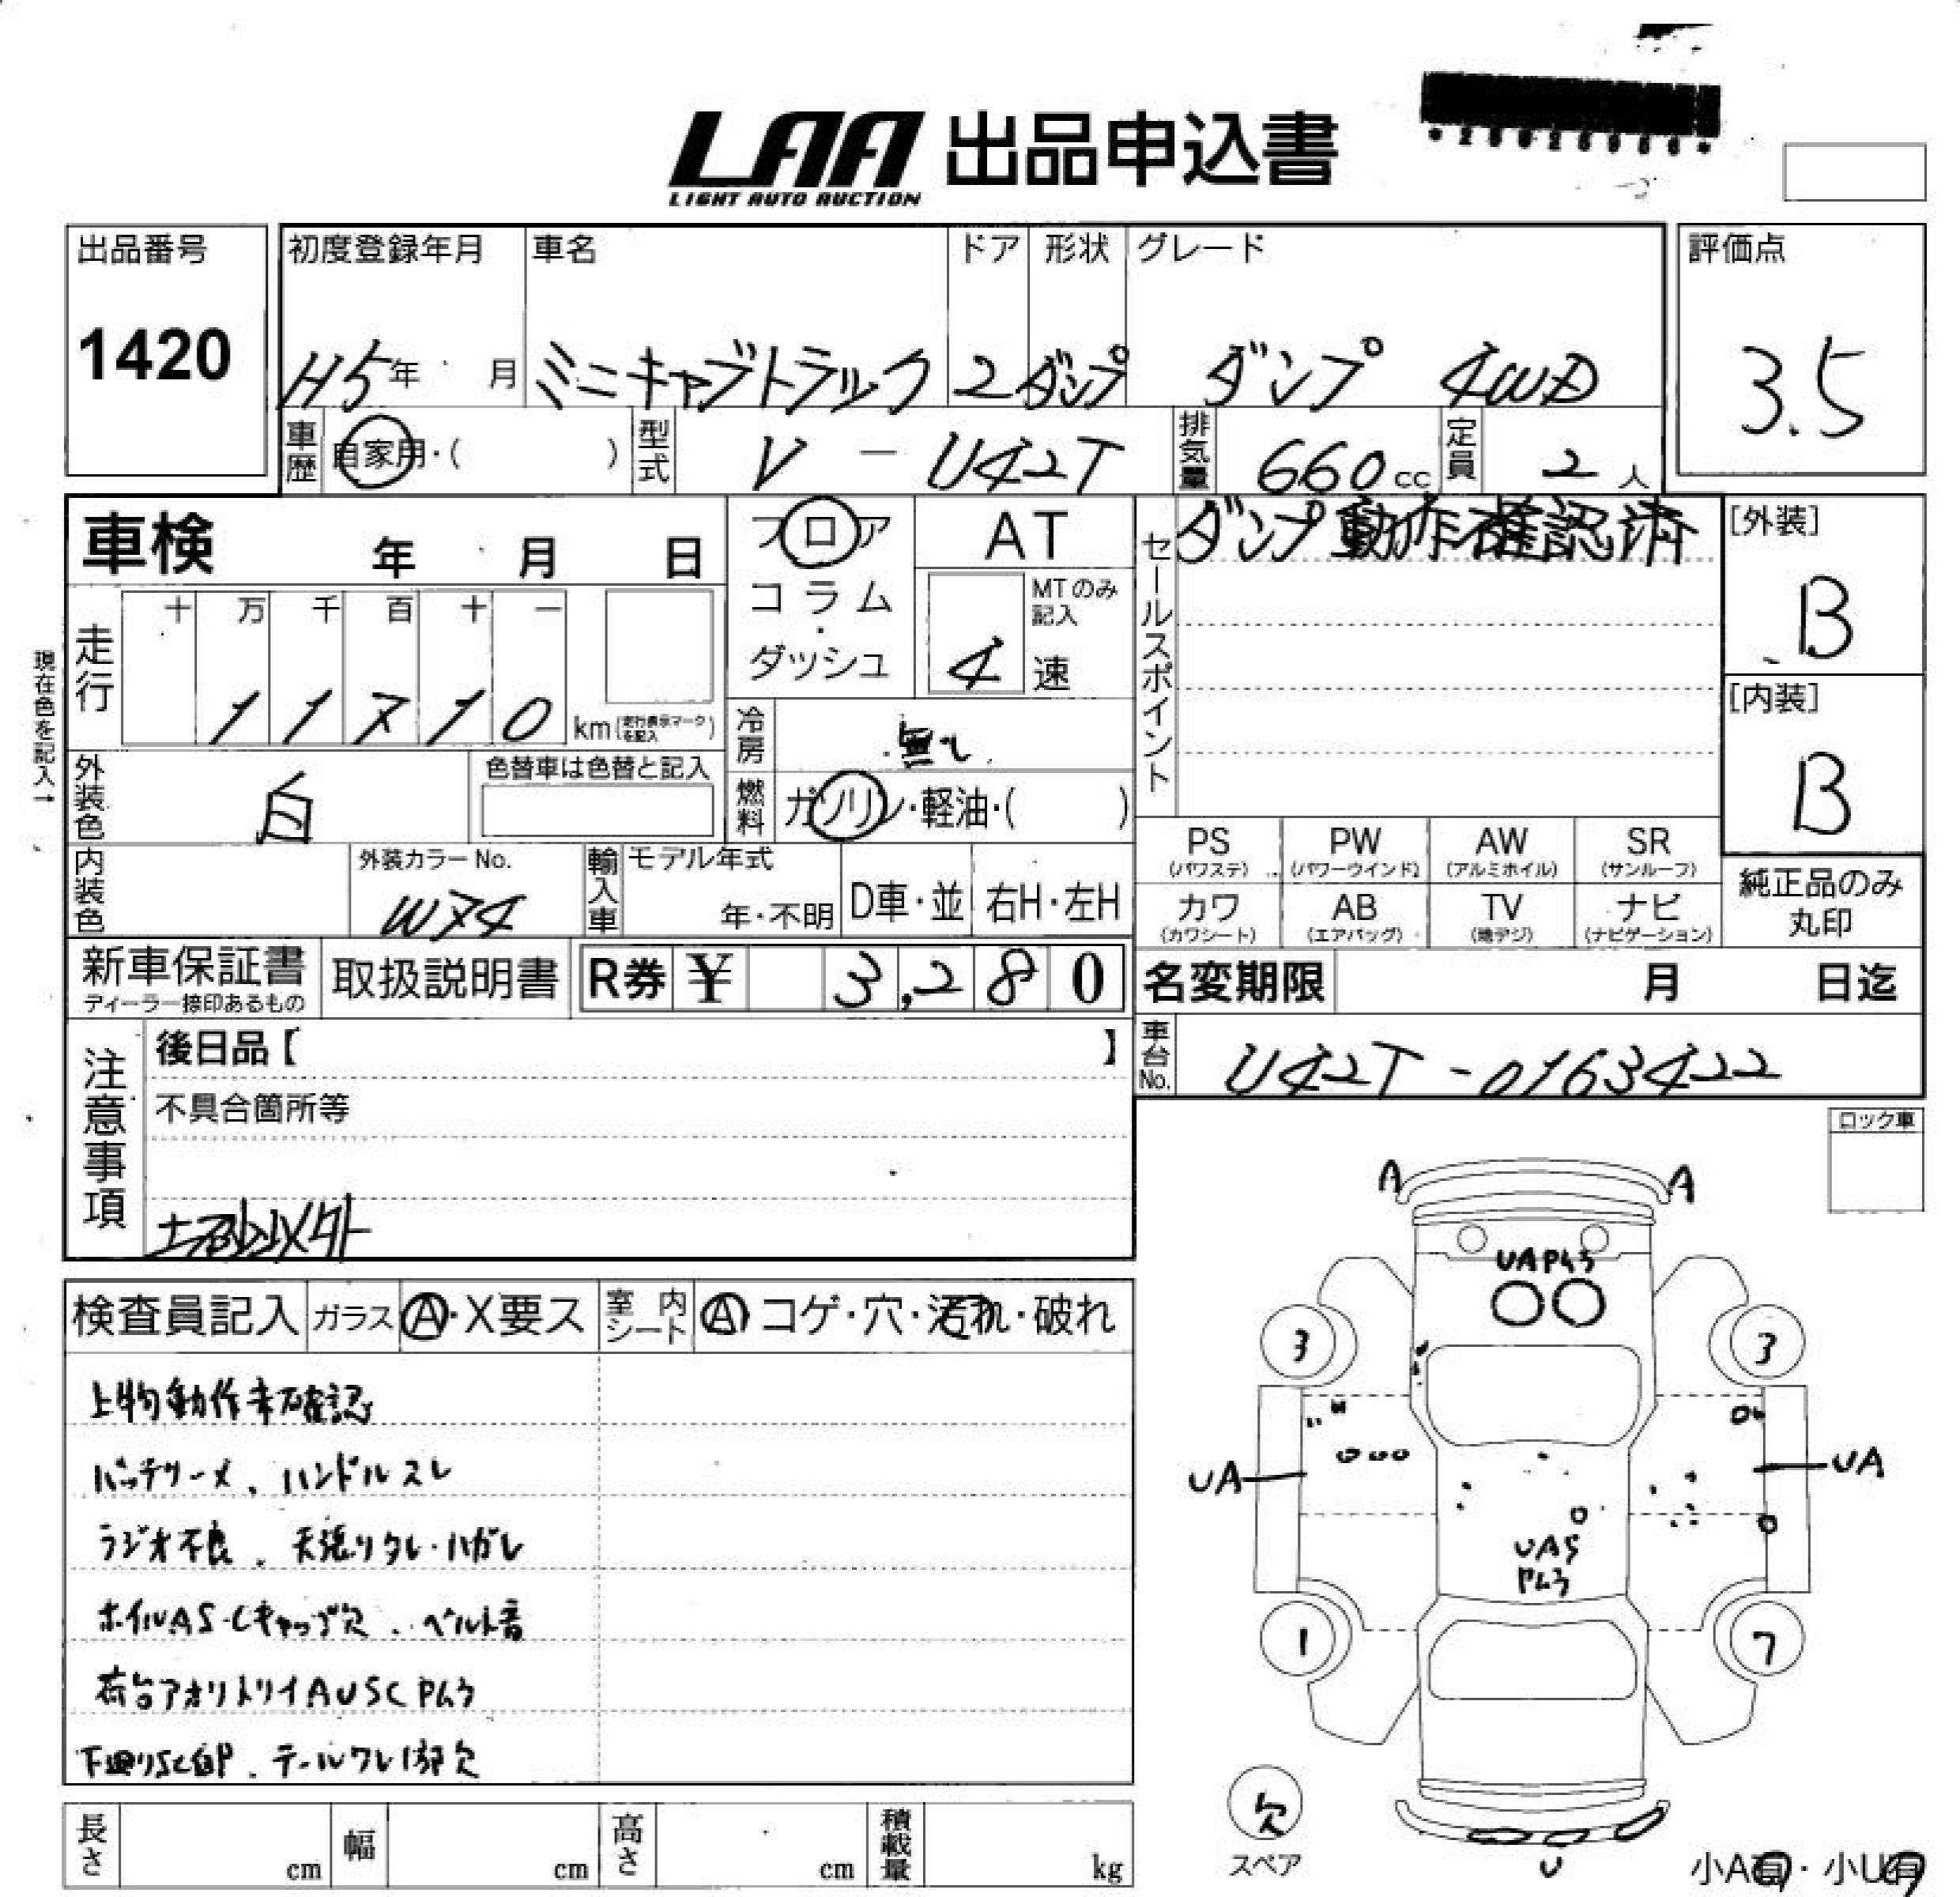 LAA 出品申込書
LIGHT AUTO AUCTION
出品番号
1420
初度登録年月
H5年 月
車名
ミニキャブトラック
ドア
2
形状
ダンプ
グレード
ダンプ 4WD
評価点
3.5
車歴
自家用・( )
型式
V - U42T
排気量
660 cc
定員
2 人
車検 年 月 日
フロア
コラム
・
ダッシュ
AT
MTのみ記入
4 速
セールスポイント
ダンプ動作確認済
[外装]
B
[内装]
B
現在色を記入→
走行
十 万 千 百 十 一
1 1 7 1 0
km (走行表示マークを記入)
冷房
無し
燃料
ガソリン・軽油・( )
外装色
白
色替車は色替と記入
内装色
外装カラー No.
W74
輸入車
モデル年式
年・不明
D車・並
右H・左H
PS (パワステ)
PW (パワーウインド)
AW (アルミホイル)
SR (サンルーフ)
カワ (カワシート)
AB (エアバッグ)
TV (地デジ)
ナビ (ナビゲーション)
純正品のみ
丸印
新車保証書
ディーラー捺印あるもの
取扱説明書
R券 ¥ 3,280
名変期限 月 日迄
車台No.
U42T-0163422
注意事項
後日品【 】
不具合箇所等
土砂以外
ロック車
検査員記入
ガラス
A・X要ス
室内シート
A・コゲ・穴・汚れ・破れ
上物動作未確認
バッテリーメ、ハンドルスレ
ラジオ不良、天張りタレ・ハガレ
ホイルAS・Cキャップ欠、ベルト音
荷台アオリトリイAUSCPムラ
下廻りSC白P、テールワレ1部欠
A A
UAPムラ
3 3
UA UA
UAS
Pムラ
1 7
欠
スペア
U
小A有・小U有
長さ cm
幅 cm
高さ cm
積載量 kg